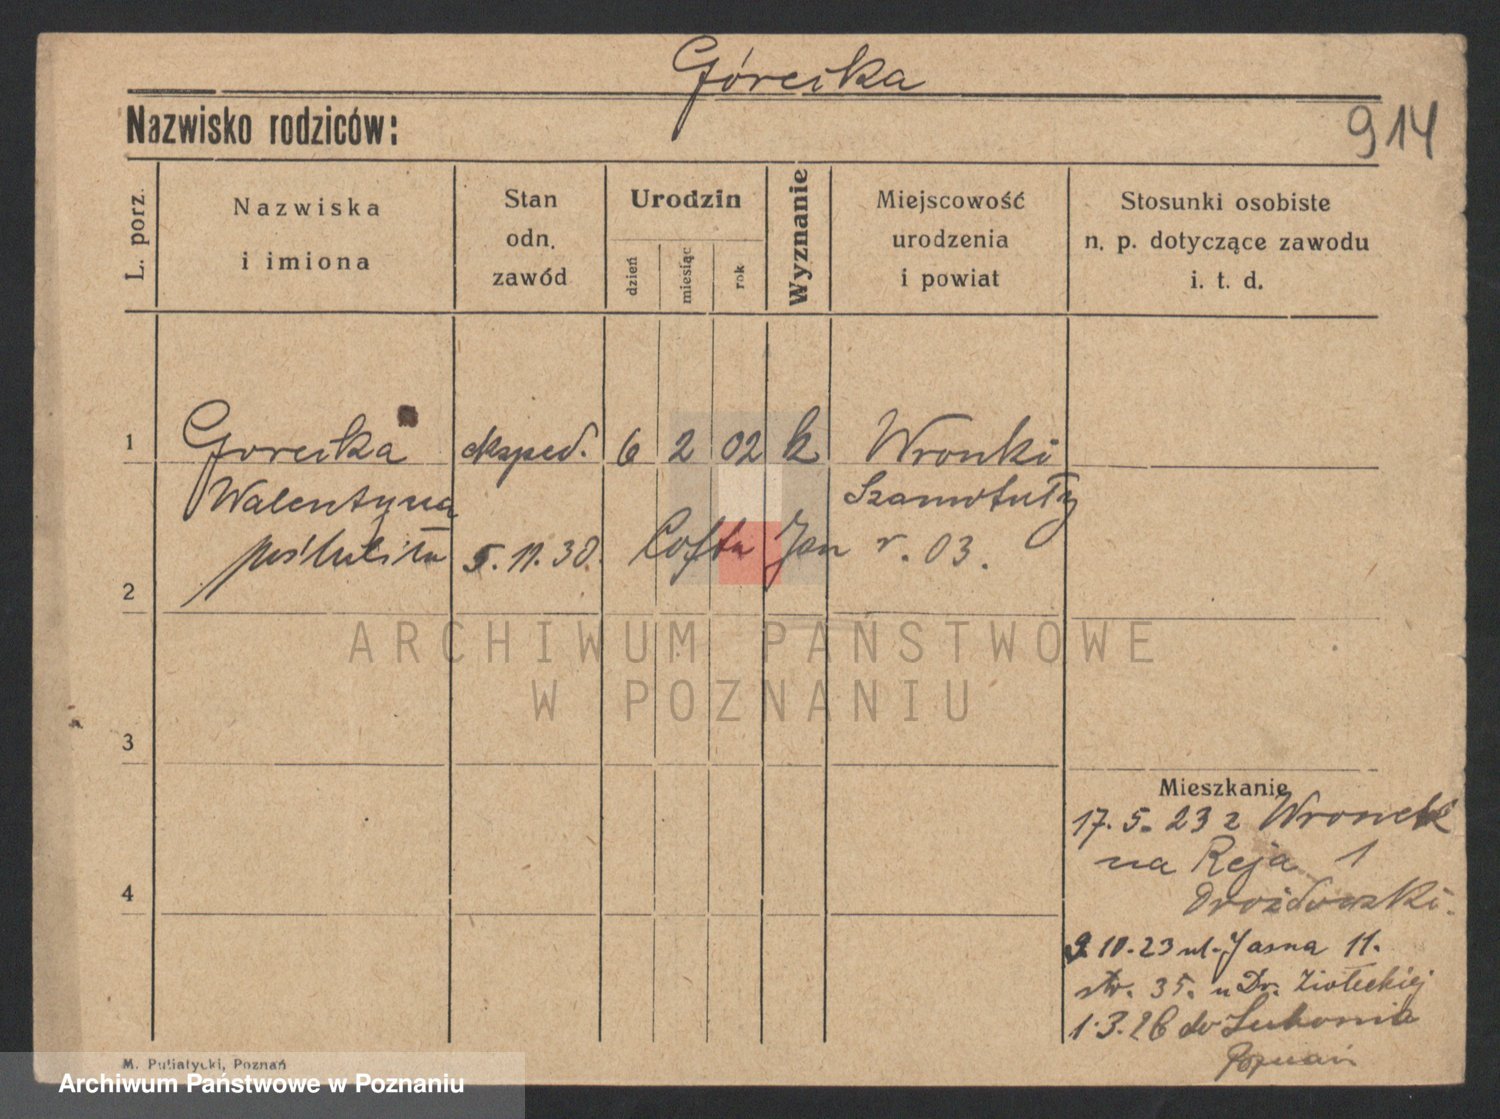 Górecka
Nazwisko rodziców:
914
L. porz.
Nazwiska
i imiona
Stan
odn.
zawód
Urodzin
dzień
miesiąc
rok
Wyznanie
Miejscowość
urodzenia
i powiat
Stosunki osobiste
n. p. dotyczące zawodu
i. t. d.
1
Gorecka eksped. 6 2 02 k Wronki
Walentyna Szamotuły
poślubiła 5.11.30. Cofta Jan r. 03.
2
ARCHIWUM PAŃSTWOWE
W POZNANIU
3
Mieszkanie
17.5.23 z Wronek
na Reja 1
Drożdowski.
4
9.10.23 ul. Jasna 11.
str. 35. u Dr. Ziołeckiej
1.3.26 do Lubonia
Poznań
M. Putiatycki, Poznań
Archiwum Państwowe w Poznaniu